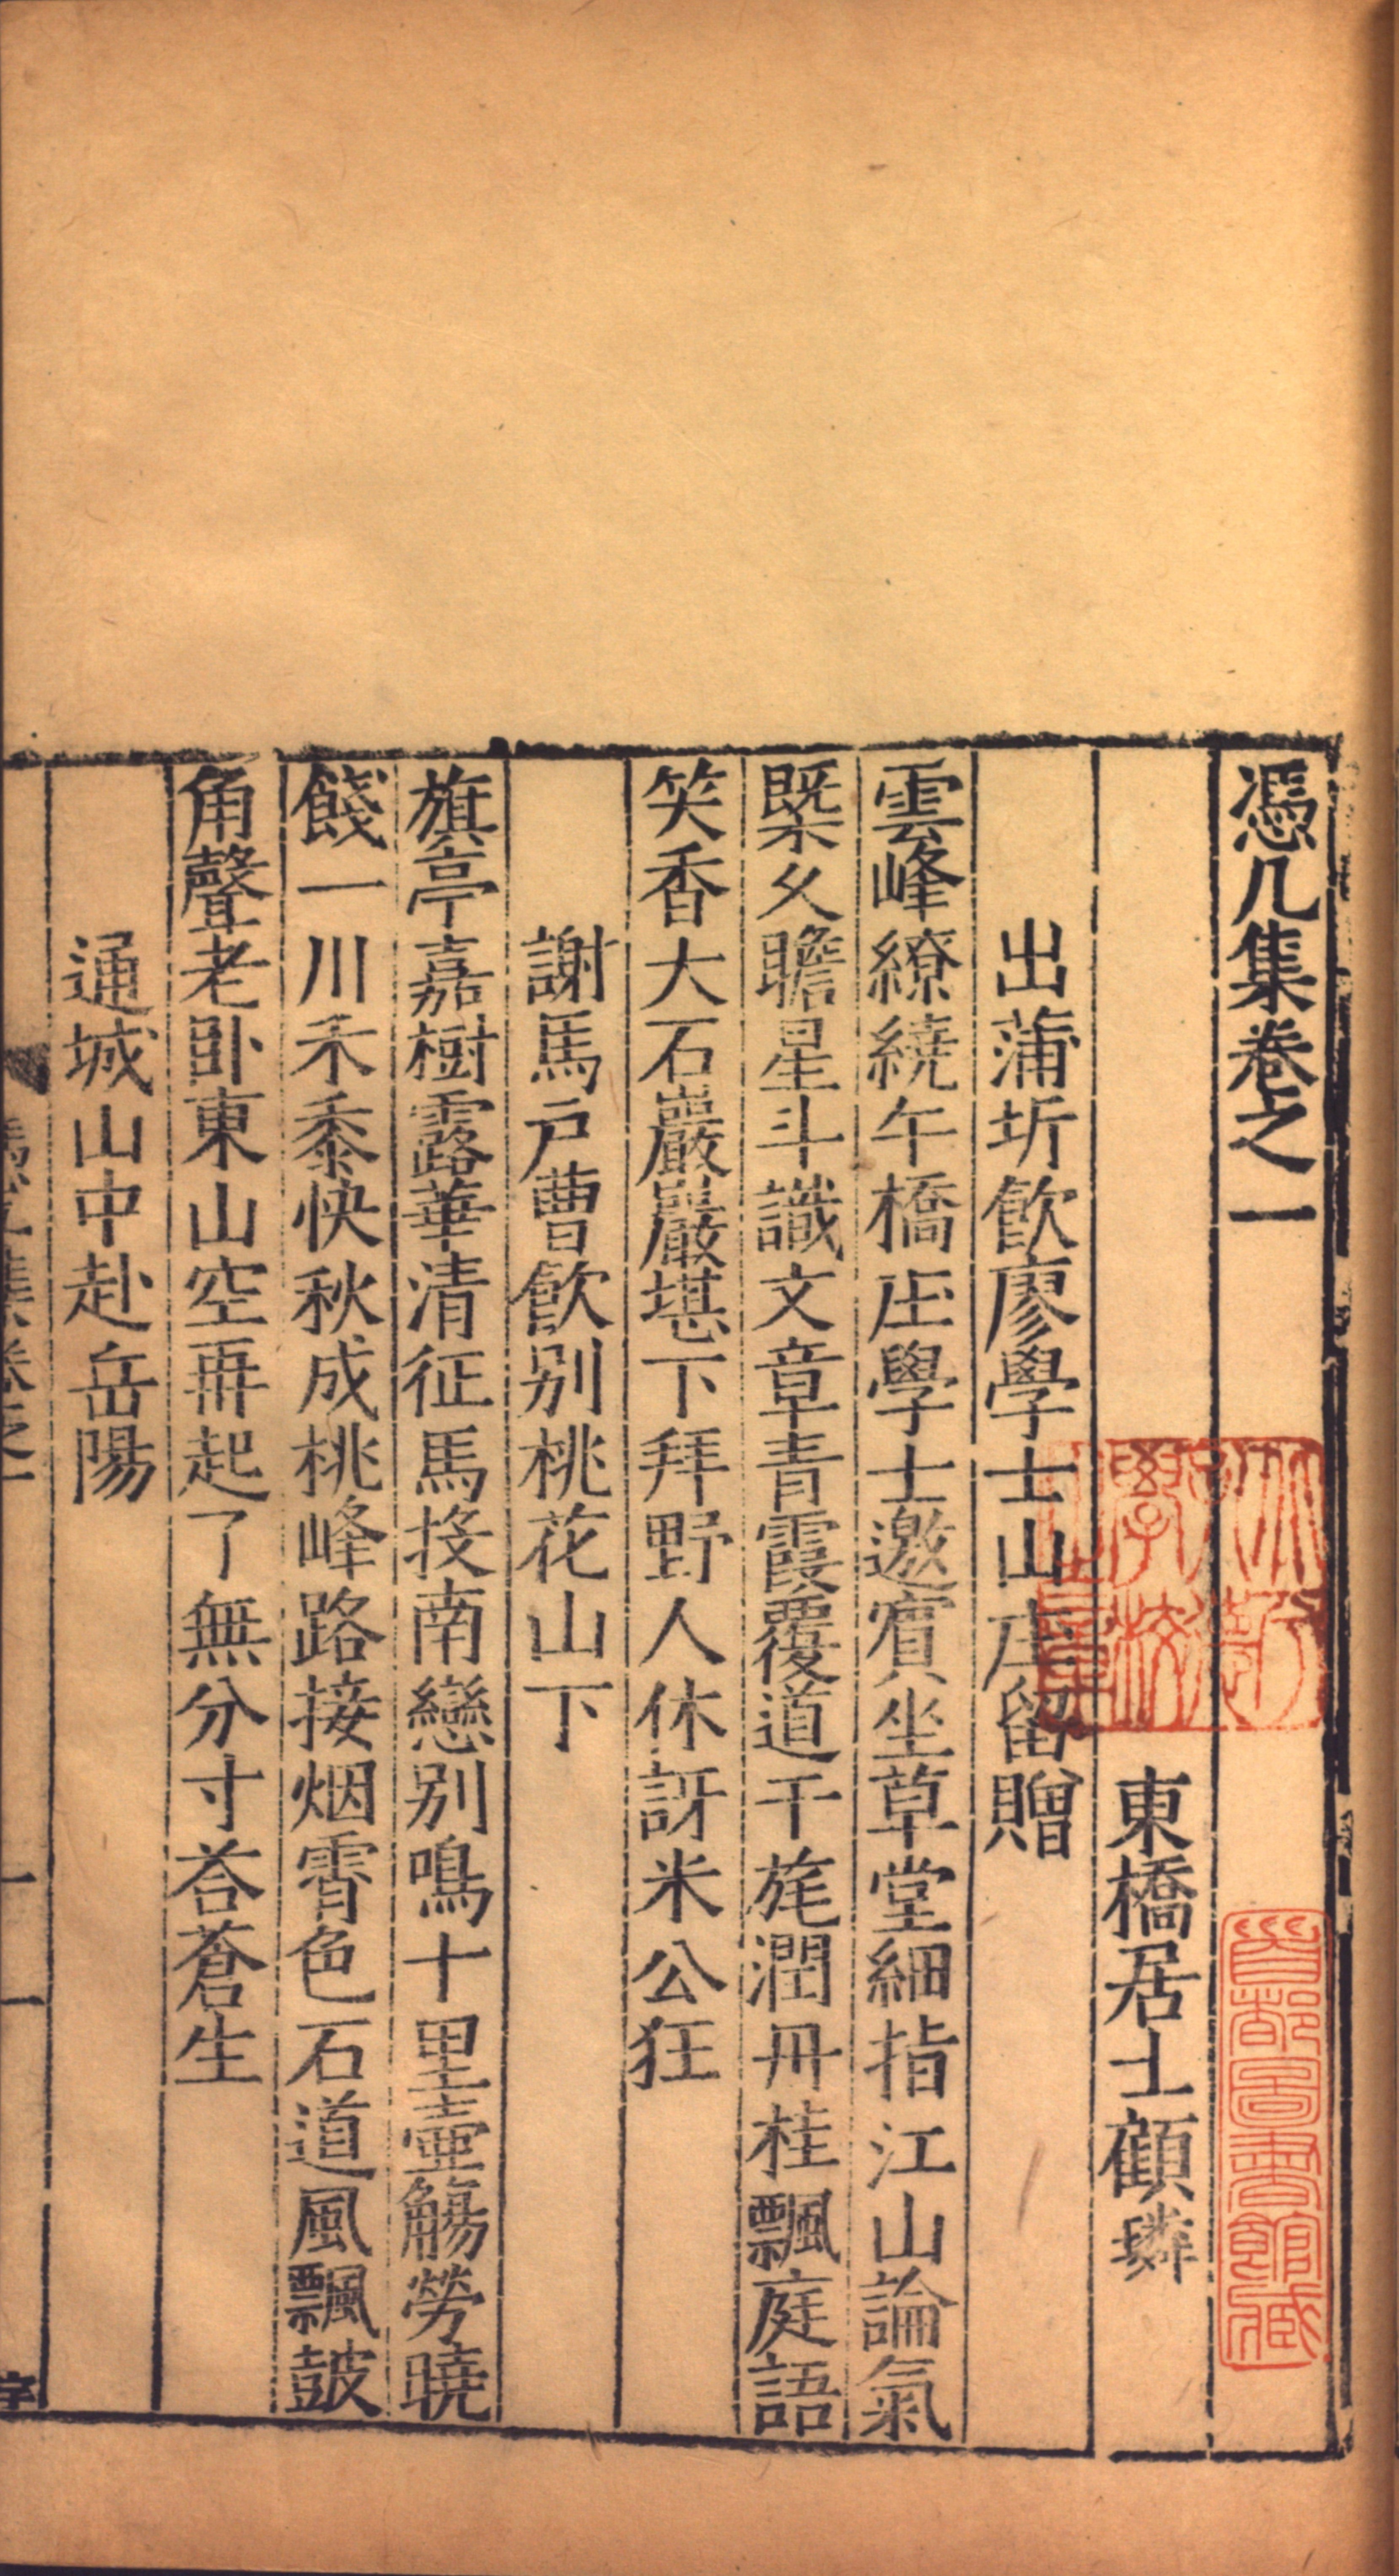 憑几集卷之一
東橋居士顧璘
出蒲圻飲廖學士山庄留贈
雲峰繚繞午橋庄學士邀賓坐草堂細指江山論氣
槩久瞻星斗識文章青霞覆道干旄潤丹桂飄庭語
笑香大石巖巖堪下拜野人休訝米公狂
謝馬戶曹飲别桃花山下
旗亭嘉樹露華清征馬投南戀别鳴十里壺觴勞曉
餞一川禾黍快秋成桃峰路接烟霄色石道風飄鼓
角聲老卧東山空再起了無分寸荅蒼生
通城山中赴岳陽
憑几集卷之一
一
首都圖書館藏